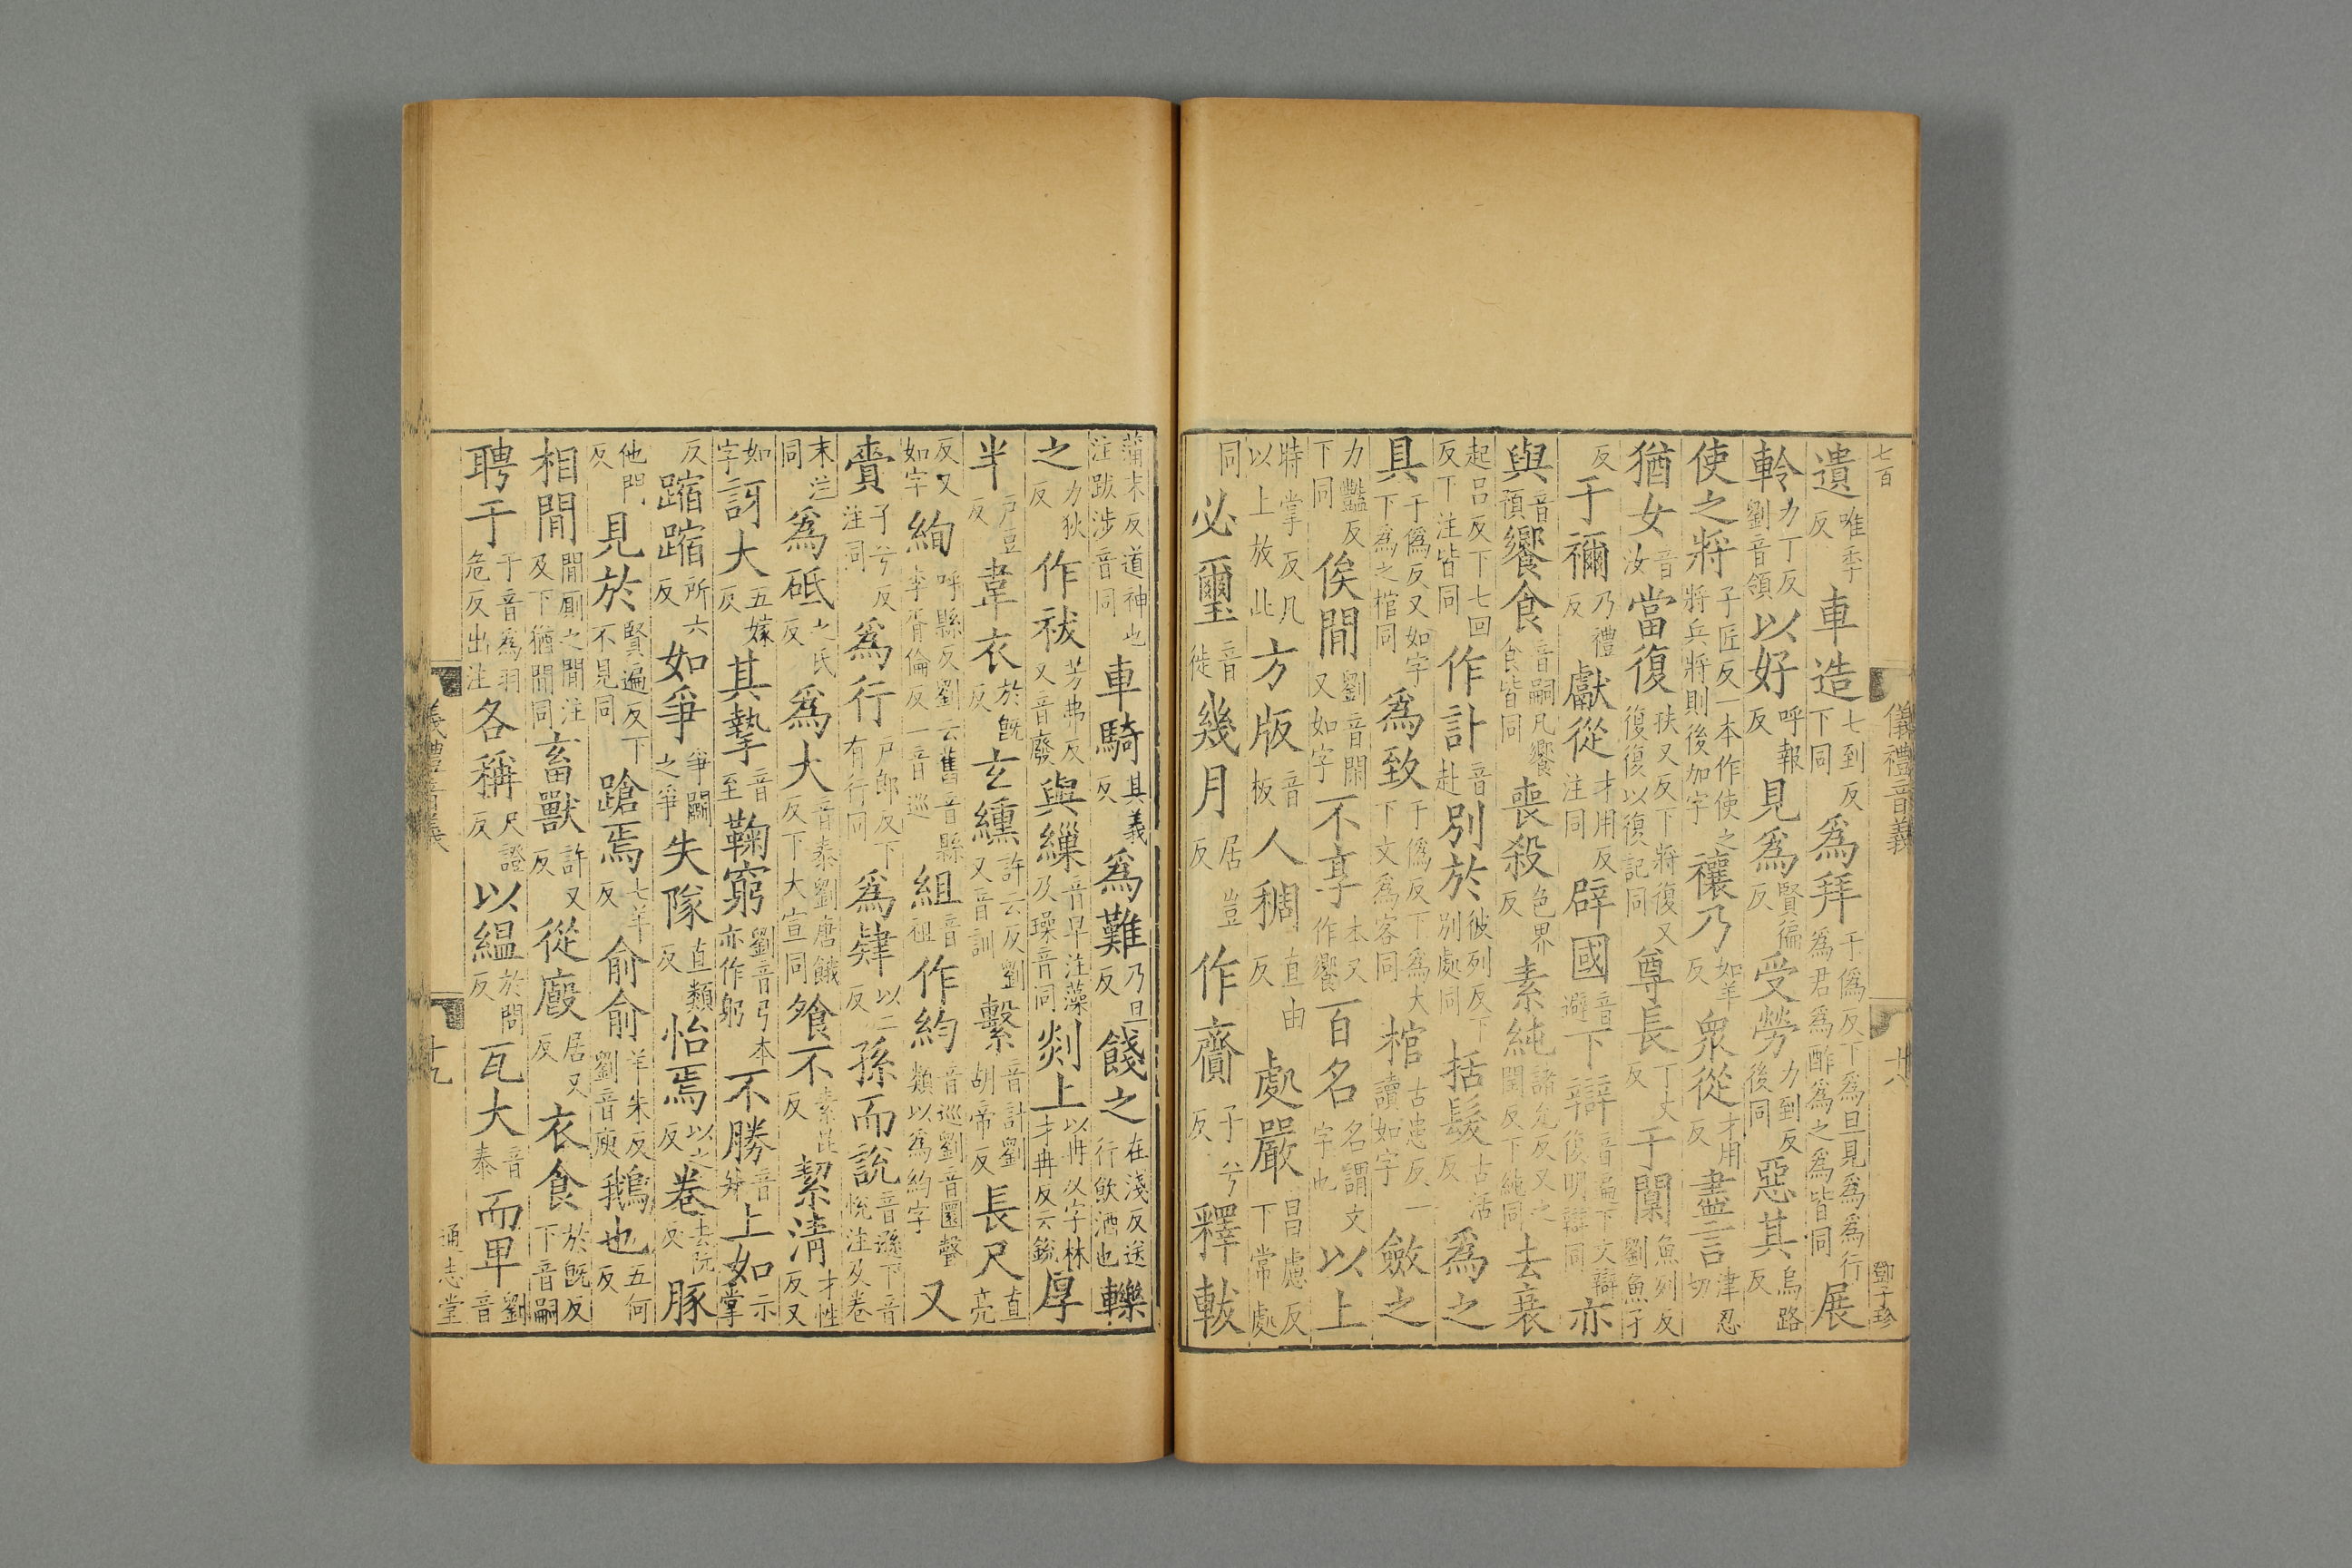 七百 儀禮音義 十八 鄧子珍
遺唯季反車造七到反下同爲拜于僞反下爲旦見爲爲行爲君爲酢爲之爲皆同展
軨力丁反劉音領以好呼報反見爲賢徧反受勞力到反後同惡其烏路反
使之將子匠反一本作使之將兵將則後加字禳乃如羊反衆從才用反盡言津忍切
猶女音汝當復扶又反下將復又復復以復記同尊長丁丈反于闑魚列反劉魚孑
反于禰乃禮反獻從才用反注同辟國音避下辯音遍下文辯復明辯同亦
與音預饗食音嗣凡饗食皆同喪殺色界反素純諸允反又之閏反下純同去衰
起呂反下七回反下注皆同作計音赴別於彼列反下別處同括髮古活反爲之
具于僞反又如字下爲之棺同爲致于僞反下爲大下文爲客同棺古患反一讀如字斂之
力豔反下同俟閒劉音閑又如字不享本又作饗百名名謂文字也以上
時掌反凡以上放此方版音板人稠直由反處嚴昌慮反下常處
同必璽音徙幾月居豈反作齎子兮反釋軷
蒲末反道神也注跋涉音同車騎其義反爲難乃旦反餞之在淺反送行飲酒也轢
之力狄反作祓芳弗反又音廢與繅音早注藻及璪音同剡上以冉反字林才冉反云銳厚
半戶豆反韋衣於旣反玄纁許云反劉又音訓繫音計劉胡帝反長尺直亮
反又如字絢呼縣反劉云舊音縣李胥倫反一音巡組音祖作約音巡劉音圜聲類以爲約字又
賷子兮反注同爲行戶郎反下有行同爲肄以二反孫而說音遜下音悅注及卷
末注同爲砥之氏反爲大音泰劉唐餓反下大宣同飧不素昆反絜清才性反又
如字訝大五嫁反其摯音至鞠窮劉音弓本亦作躬不勝音升上如示掌
反蹜蹜所六反如爭爭鬬之爭失隊直類反怡焉以之反卷去阮反豚
他門反見於賢遍反下不見同蹌焉七羊反俞俞羊朱反劉音庾鵝也五何反
相閒閒厠之閒注及下猶閒同畜獸許又反從廏居又反衣食於旣反下音嗣
聘于于音爲羽危反出注各稱尺證反以緼於問反瓦大音泰而卑劉音
義禮音義 十九 通志堂